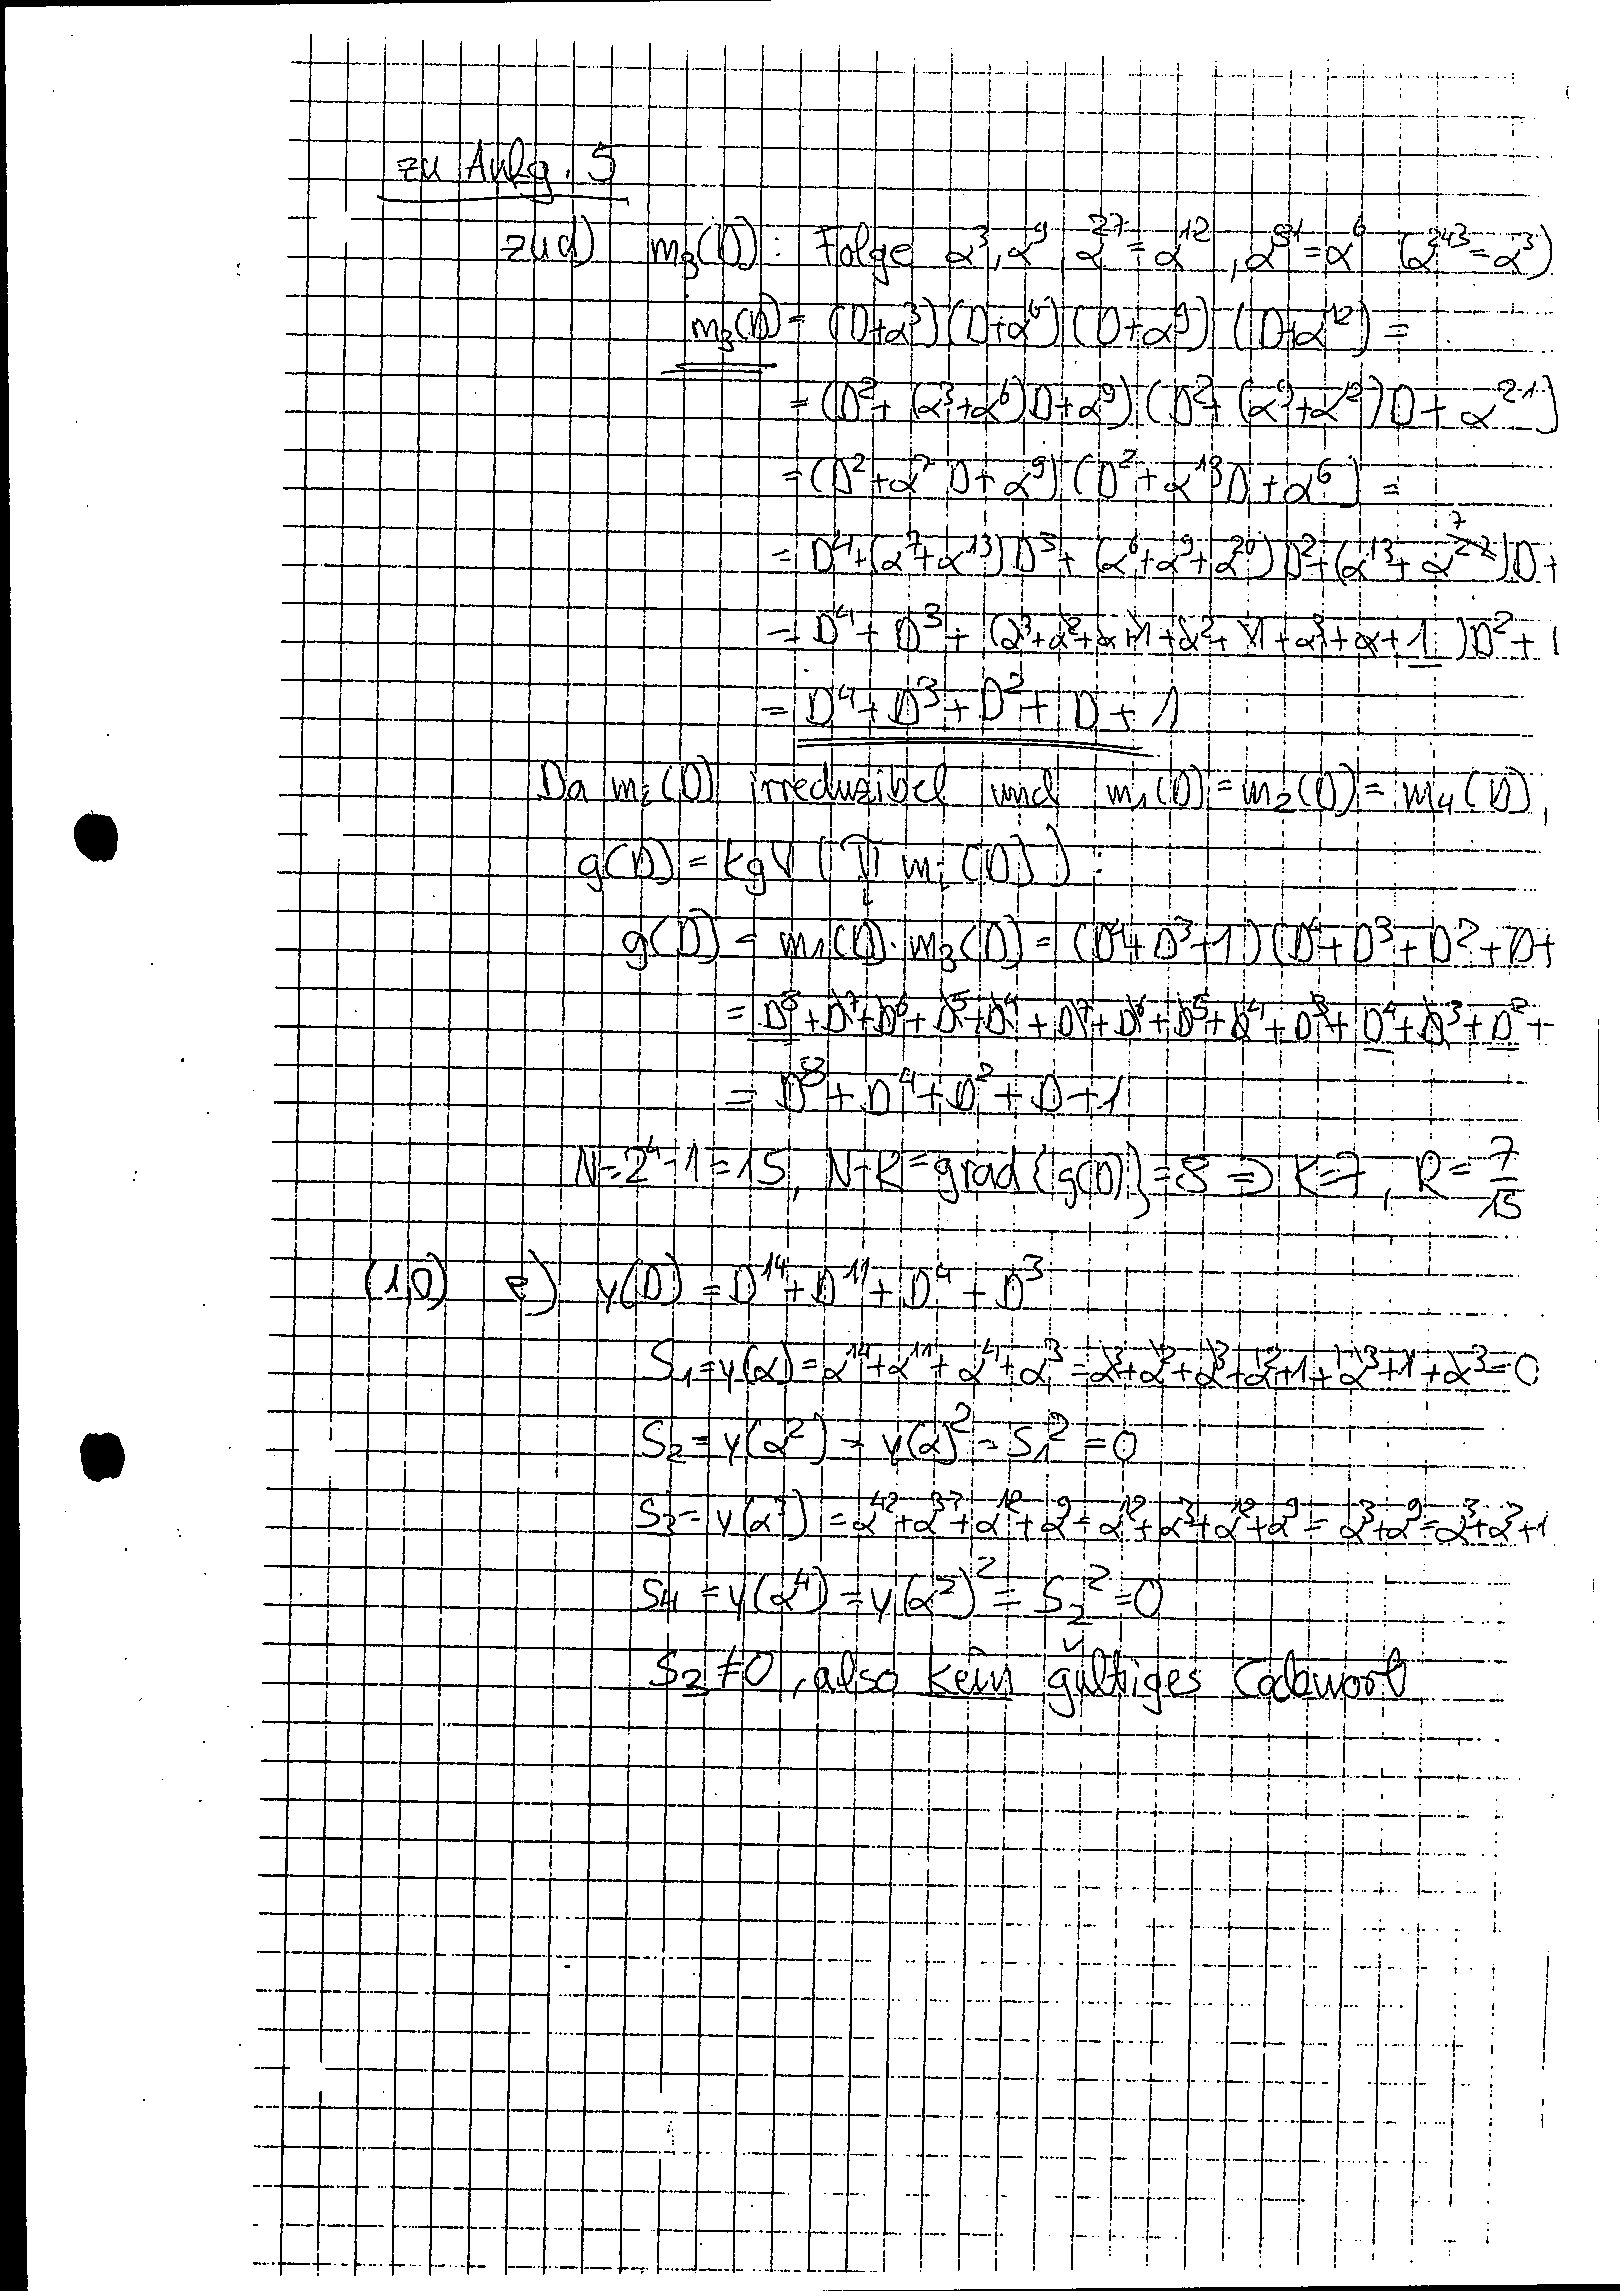 zu Aufg. 5
zu d) m₃(D): Folge α³, α⁹, α²⁷ = α¹², α⁸¹ = α⁶ (α²⁴³ = α³)
m₃(D) = (D+α³)(D+α⁶)(D+α⁹)(D+α¹²) =
= (D² + (α³+α⁶)D + α⁹)(D² + (α⁹+α¹²)D + α²¹)
= (D² + α² D + α⁹)(D² + α¹³D + α⁶) =
= D⁴ + (α⁷+α¹³)D³ + (α⁶+α⁹+α²⁰)D² + (α¹³ + α⁷)D +
= D⁴ + D³ + (α³+α²+α+1+α²+1+α³+α+1)D² + 1
= D⁴ + D³ + D² + D + 1
Da mᵢ(D) irreduzibel und m₁(D) = m₂(D) = m₄(D),
g(D) = kgV (∏ mᵢ(D)):
g(D) = m₁(D)·m₃(D) = (D⁴+D³+1)(D⁴+D³+D²+D+
= D⁸+D⁷+D⁶+D⁵+D⁴+D⁷+D⁶+D⁵+D⁴+D³+D⁴+D³+D²+
= D⁸ + D⁴ + D² + D + 1
N=2⁴-1=15, N-K=grad{g(D)}=8 ⇒ K=7, R = 7/15
(1,0) e) y(D) = D¹⁴ + D¹¹ + D⁴ + D³
S₁ = y(α) = α¹⁴+α¹¹+α⁴+α³ = α³+α²+α³+α²+1+α³+1+α³ = 0
S₂ = y(α²) = y(α)² = S₁² = 0
S₃ = y(α³) = α⁴²+α³³+α¹²+α⁹ = α¹²+α³+α¹²+α⁹ = α³+α⁹ = α³+α²+1
S₄ = y(α⁴) = y(α²)² = S₂² = 0
S₃ ≠ 0, also kein gültiges Codewort